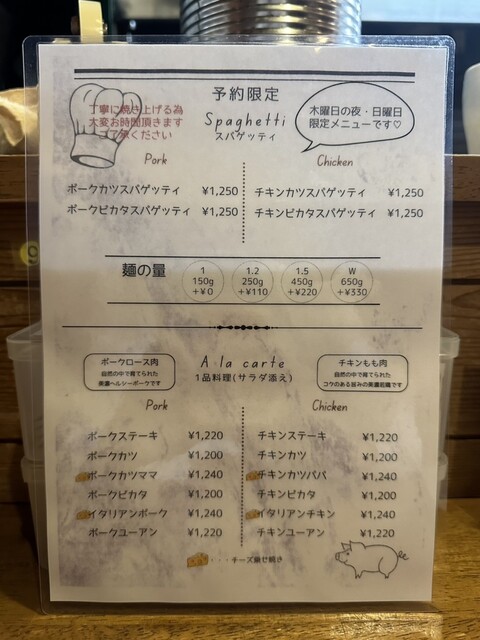 予約限定
丁寧に焼き上げる為
大変お時間頂きます
ご了承ください
Spaghetti
スパゲッティ
木曜日の夜・日曜日
限定メニューです♡
Pork
ポークカツスパゲッティ ¥1,250
ポークピカタスパゲッティ ¥1,250
Chicken
チキンカツスパゲッティ ¥1,250
チキンピカタスパゲッティ ¥1,250
麺の量
1
150g
+¥0
1.2
250g
+¥110
1.5
450g
+¥220
W
650g
+¥330
ポークロース肉
自然の中で育てられた
美濃ヘルシーポークです
A la carte
1品料理(サラダ添え)
チキンもも肉
自然の中で育てられた
コクのある旨みの美濃若鶏です
Pork
ポークステーキ ¥1,220
ポークカツ ¥1,200
ポークカツママ ¥1,240
ポークピカタ ¥1,200
イタリアンポーク ¥1,240
ポークユーアン ¥1,220
Chicken
チキンステーキ ¥1,220
チキンカツ ¥1,200
チキンカツパパ ¥1,240
チキンピカタ ¥1,200
イタリアンチキン ¥1,240
チキンユーアン ¥1,220
・・・チーズ乗せ焼き